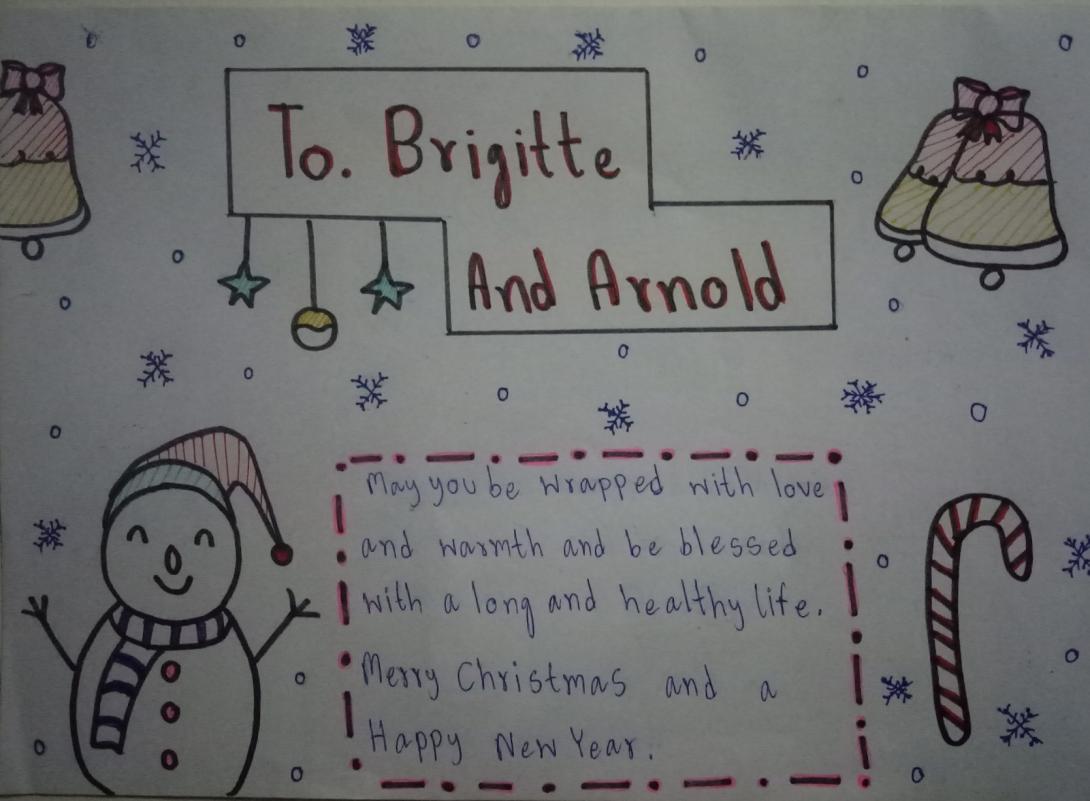 To. Brigitte
And Arnold
May you be wrapped with love
and warmth and be blessed
with a long and healthy life.
Merry Christmas and a
Happy New Year.